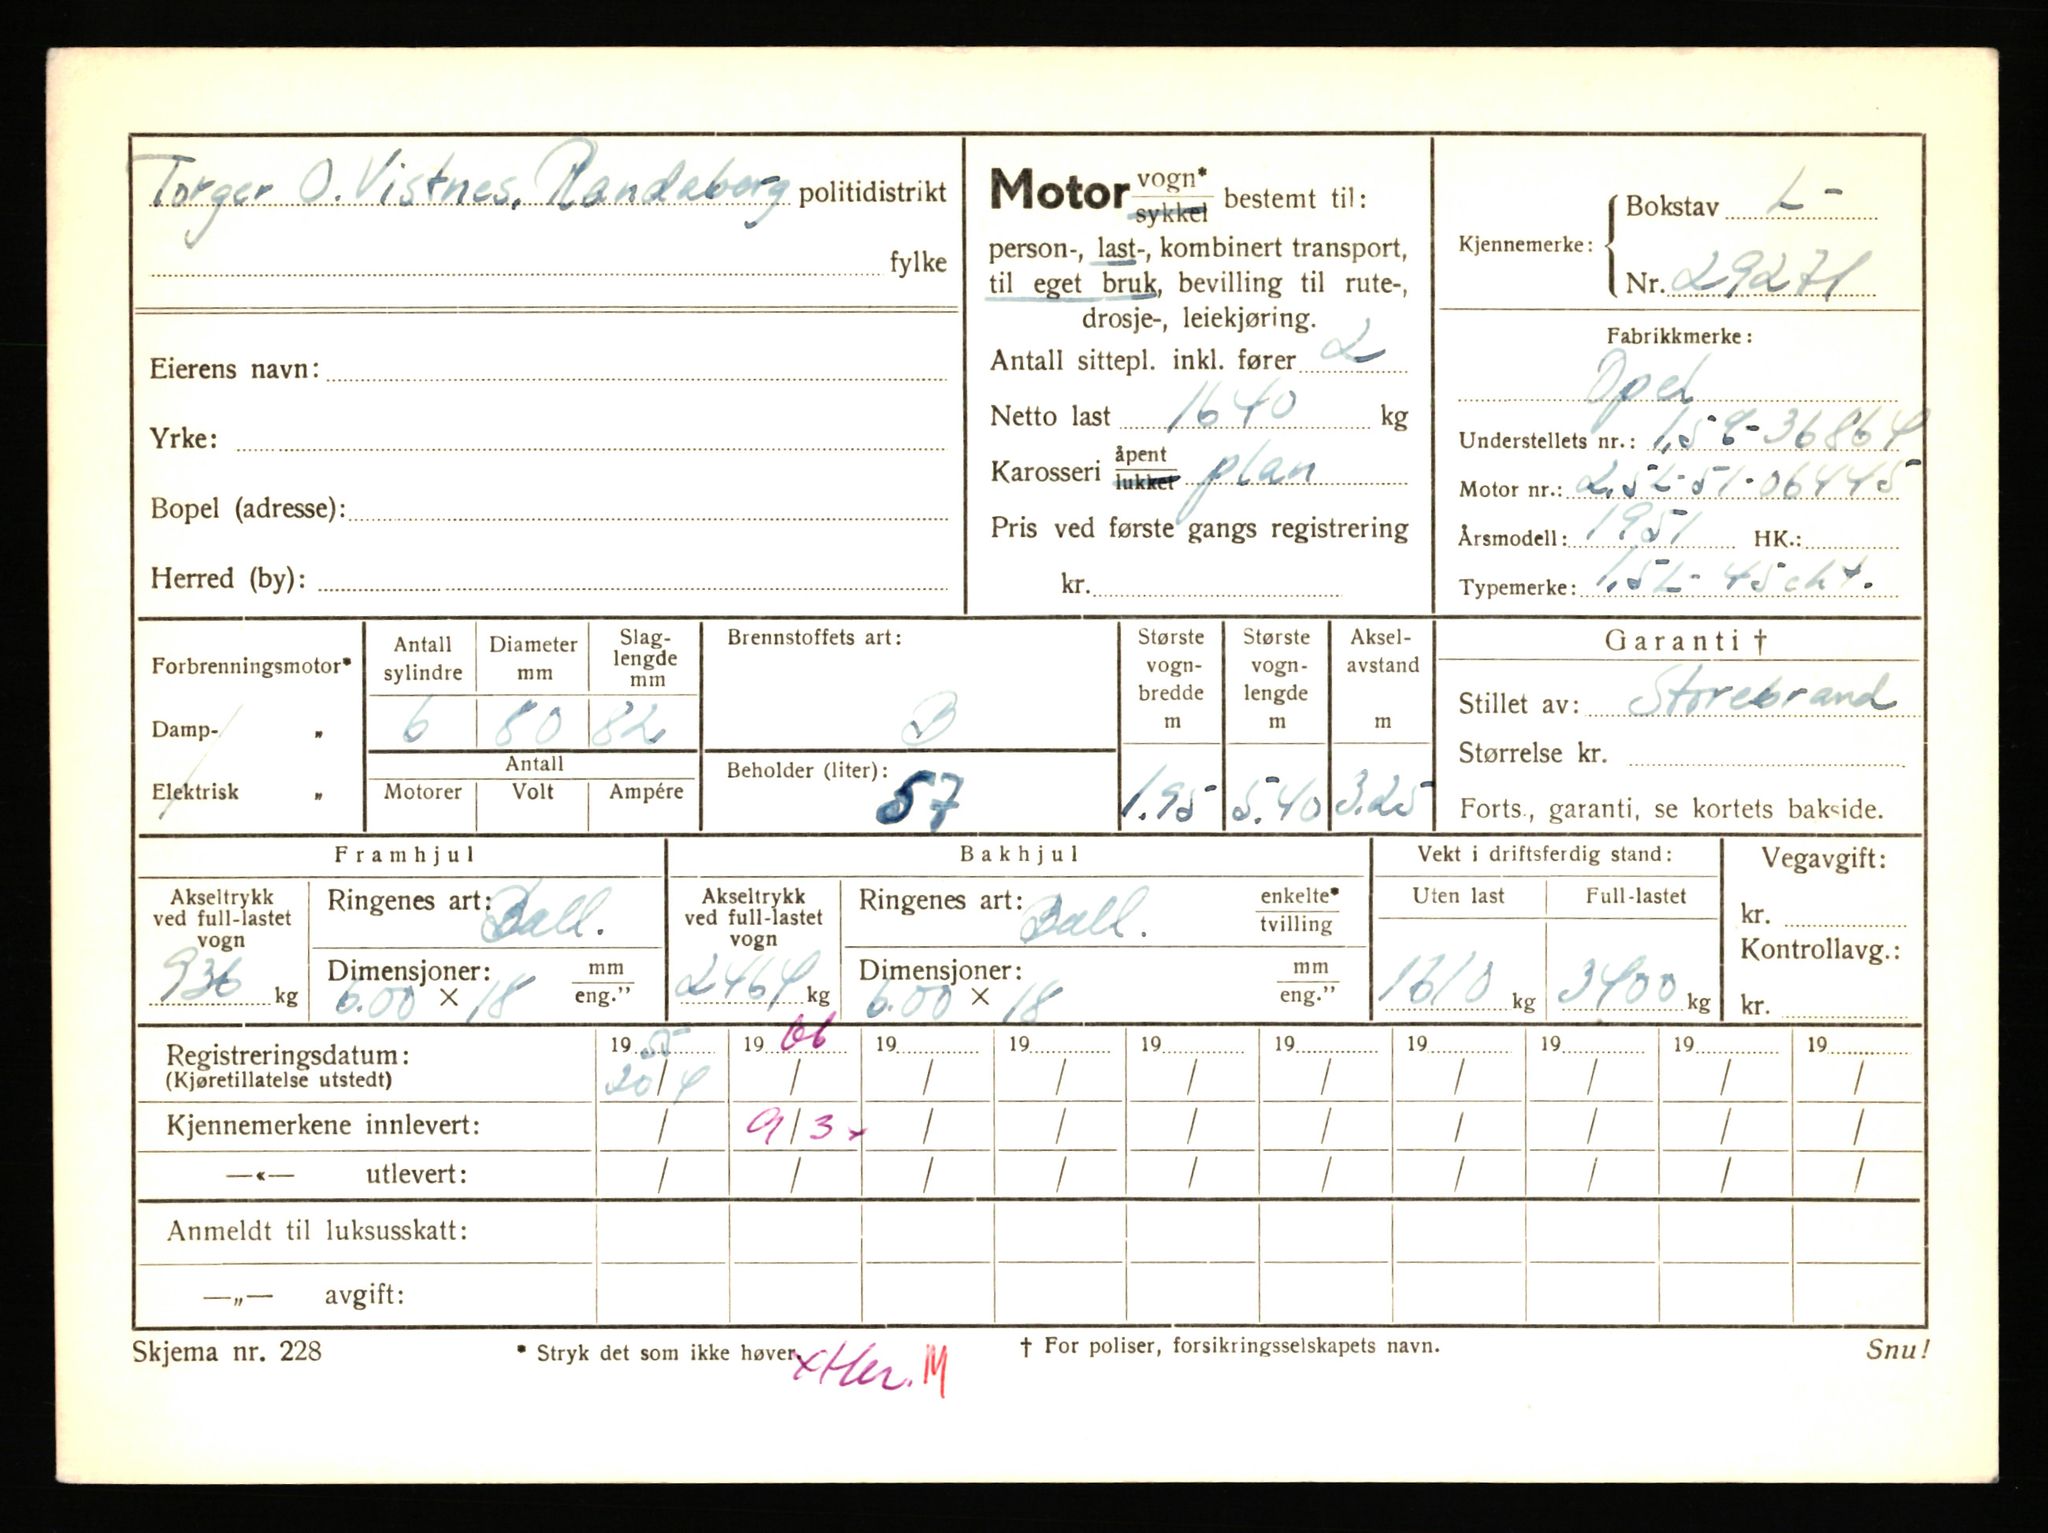 Torger O. Vistnes, Randaberg politidistrikt
fylke
Eierens navn:
Yrke:
Bopel (adresse):
Herred (by):
Motor vogn* sykkel bestemt til:
person-, last-, kombinert transport,
til eget bruk, bevilling til rute-,
drosje-, leiekjøring.
Antall sittepl. inkl. fører 2
Netto last 1640 kg
Karosseri åpent lukket plan
Pris ved første gangs registrering
kr.
Kjennemerke: Bokstav L-
Nr. 29271
Fabrikkmerke:
Opel
Understellets nr.: 36864
Motor nr.: 2,5L-51-06445
Årsmodell: 1951 HK.:
Typemerke: 1,5L-
Forbrenningsmotor*
Damp- „
Elektrisk „
Antall sylindre
Diameter mm
Slaglengde mm
6 80 82
Antall
Motorer Volt Ampére
Brennstoffets art:
B
Beholder (liter):
57
Største vogn-bredde m
1.95
Største vogn-lengde m
5.40
Aksel-avstand m
3.25
Garanti †
Stillet av: Storebrand
Størrelse kr.
Forts., garanti, se kortets bakside.
Framhjul
Akseltrykk ved full-lastet vogn
936 kg
Ringenes art: Ball.
Dimensjoner: mm eng.”
6.00 × 18
Bakhjul
Akseltrykk ved full-lastet vogn
2464 kg
Ringenes art: Ball. enkelte* tvilling
Dimensjoner: mm eng.”
6.00 × 18
Vekt i driftsferdig stand:
Uten last Full-lastet
1610 kg 3400 kg
Vegavgift:
kr.
Kontrollavg.:
kr.
Registreringsdatum: 1955 1966 19 19 19 19 19 19 19 19
(Kjøretillatelse utstedt) 20/4 / / / / / / / / /
Kjennemerkene innlevert: / 9/3 x / / / / / / / /
—«— utlevert: / / / / / / / / / /
Anmeldt til luksusskatt:
—„— avgift:
Skjema nr. 228 * Stryk det som ikke høver. † For poliser, forsikringsselskapets navn. Snu!
M